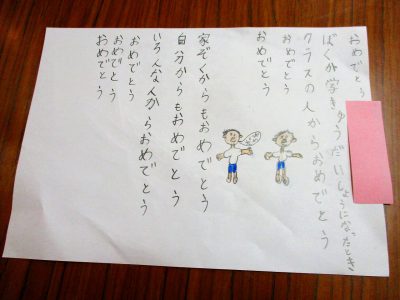 おめでとう
ぼくが学きゅうだいひょうになったとき
クラスの人からおめでとう
おめでとう
おめでとう
家ぞくからもおめでとう
自分からもおめでとう
いろんな人からおめでとう
おめでとう
おめでとう
おめでとう